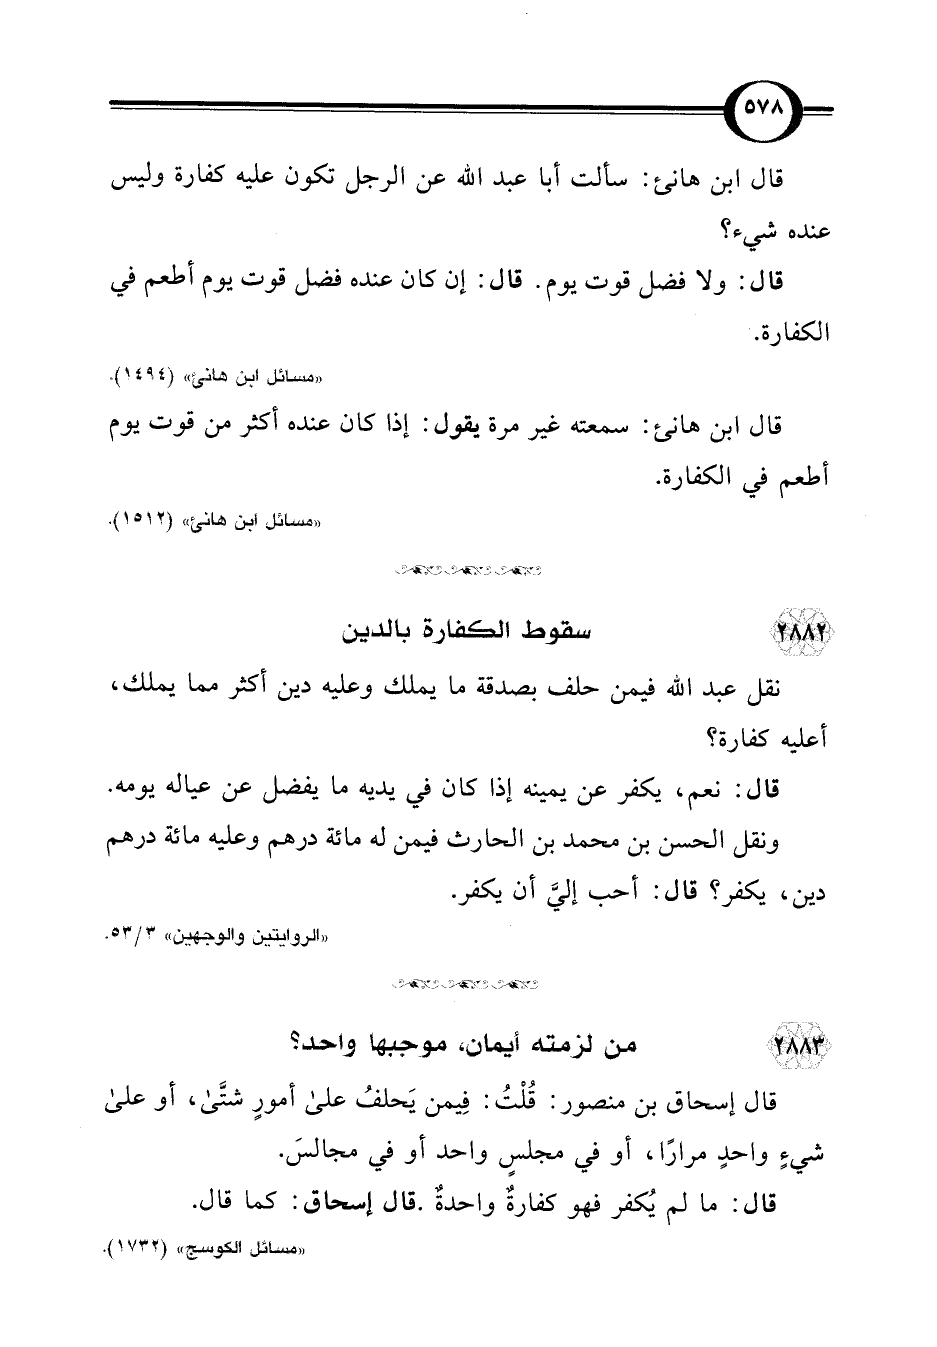 ٥٧٨
قال ابن هانئ: سألت أبا عبد الله عن الرجل تكون عليه كفارة وليس
عنده شيء؟
قال: ولا فضل قوت يوم. قال: إن كان عنده فضل قوت يوم أطعم في
الكفارة.
«مسائل ابن هانئ» (١٤٩٤).
قال ابن هانئ: سمعته غير مرة يقول: إذا كان عنده أكثر من قوت يوم
أطعم في الكفارة.
«مسائل ابن هانئ» (١٥١٢).
٢٨٨٢ سقوط الكفارة بالدين
نقل عبد الله فيمن حلف بصدقة ما يملك وعليه دين أكثر مما يملك،
أعليه كفارة؟
قال: نعم، يكفر عن يمينه إذا كان في يديه ما يفضل عن عياله يومه.
ونقل الحسن بن محمد بن الحارث فيمن له مائة درهم وعليه مائة درهم
دين، يكفر؟ قال: أحب إليَّ أن يكفر.
«الروايتين والوجهين» ٥٣/٣.
٢٨٨٣ من لزمته أيمان، موجبها واحد؟
قال إسحاق بن منصور: قُلْتُ: فِيمن يَحلفُ علىٰ أمورٍ شتَّىٰ، أو علىٰ
شيءٍ واحدٍ مرارًا، أو في مجلسٍ واحد أو في مجالسَ.
قال: ما لم يُكفر فهو كفارةٌ واحدةٌ .قال إسحاق: كما قال.
«مسائل الكوسج» (١٧٣٢).